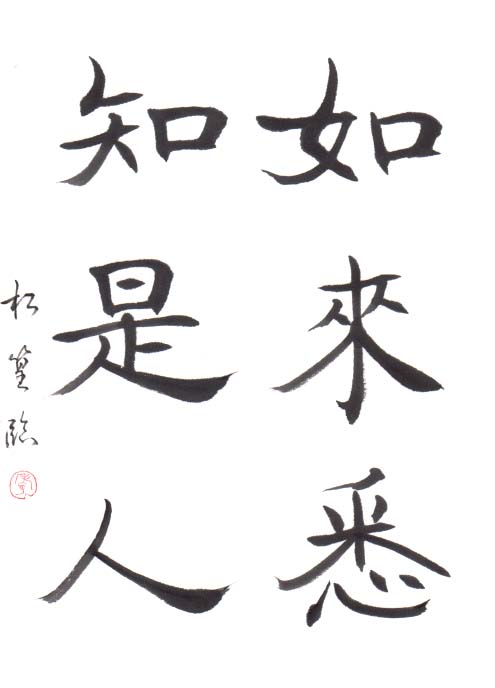 如來悉
知是人
松篁臨